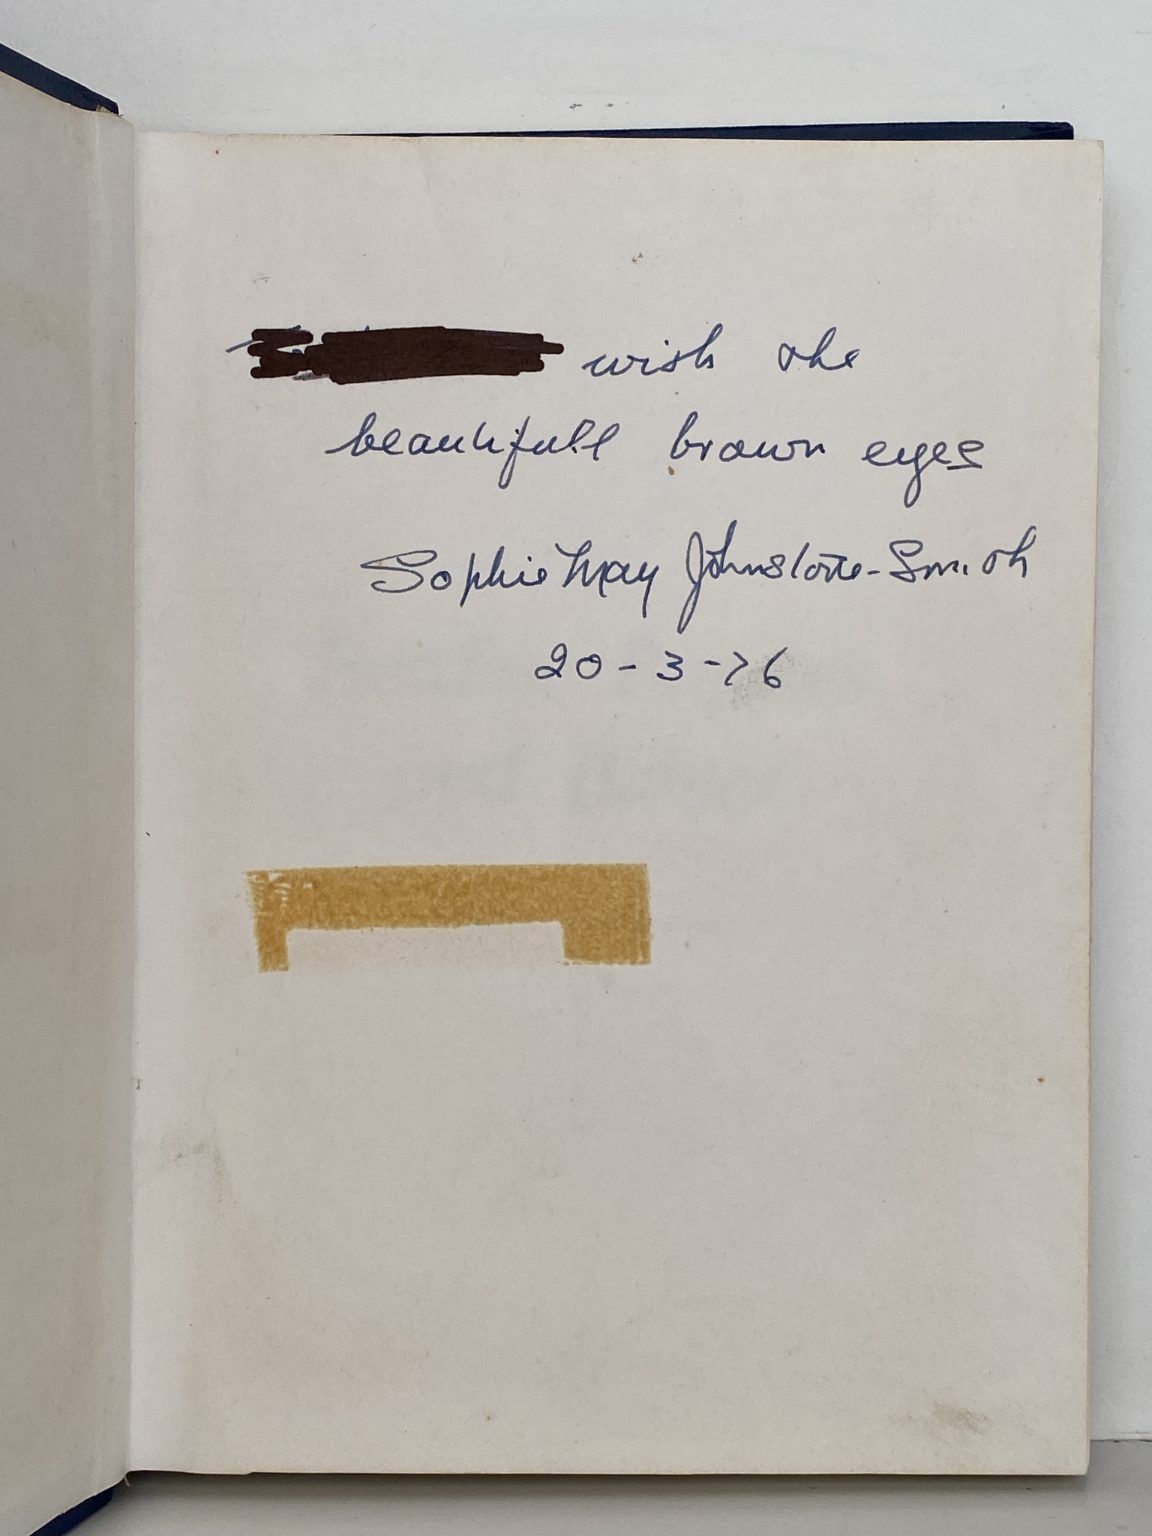 wish the
beautifull brown eyes
Sophie May Johnstone-Smith
20-3-76